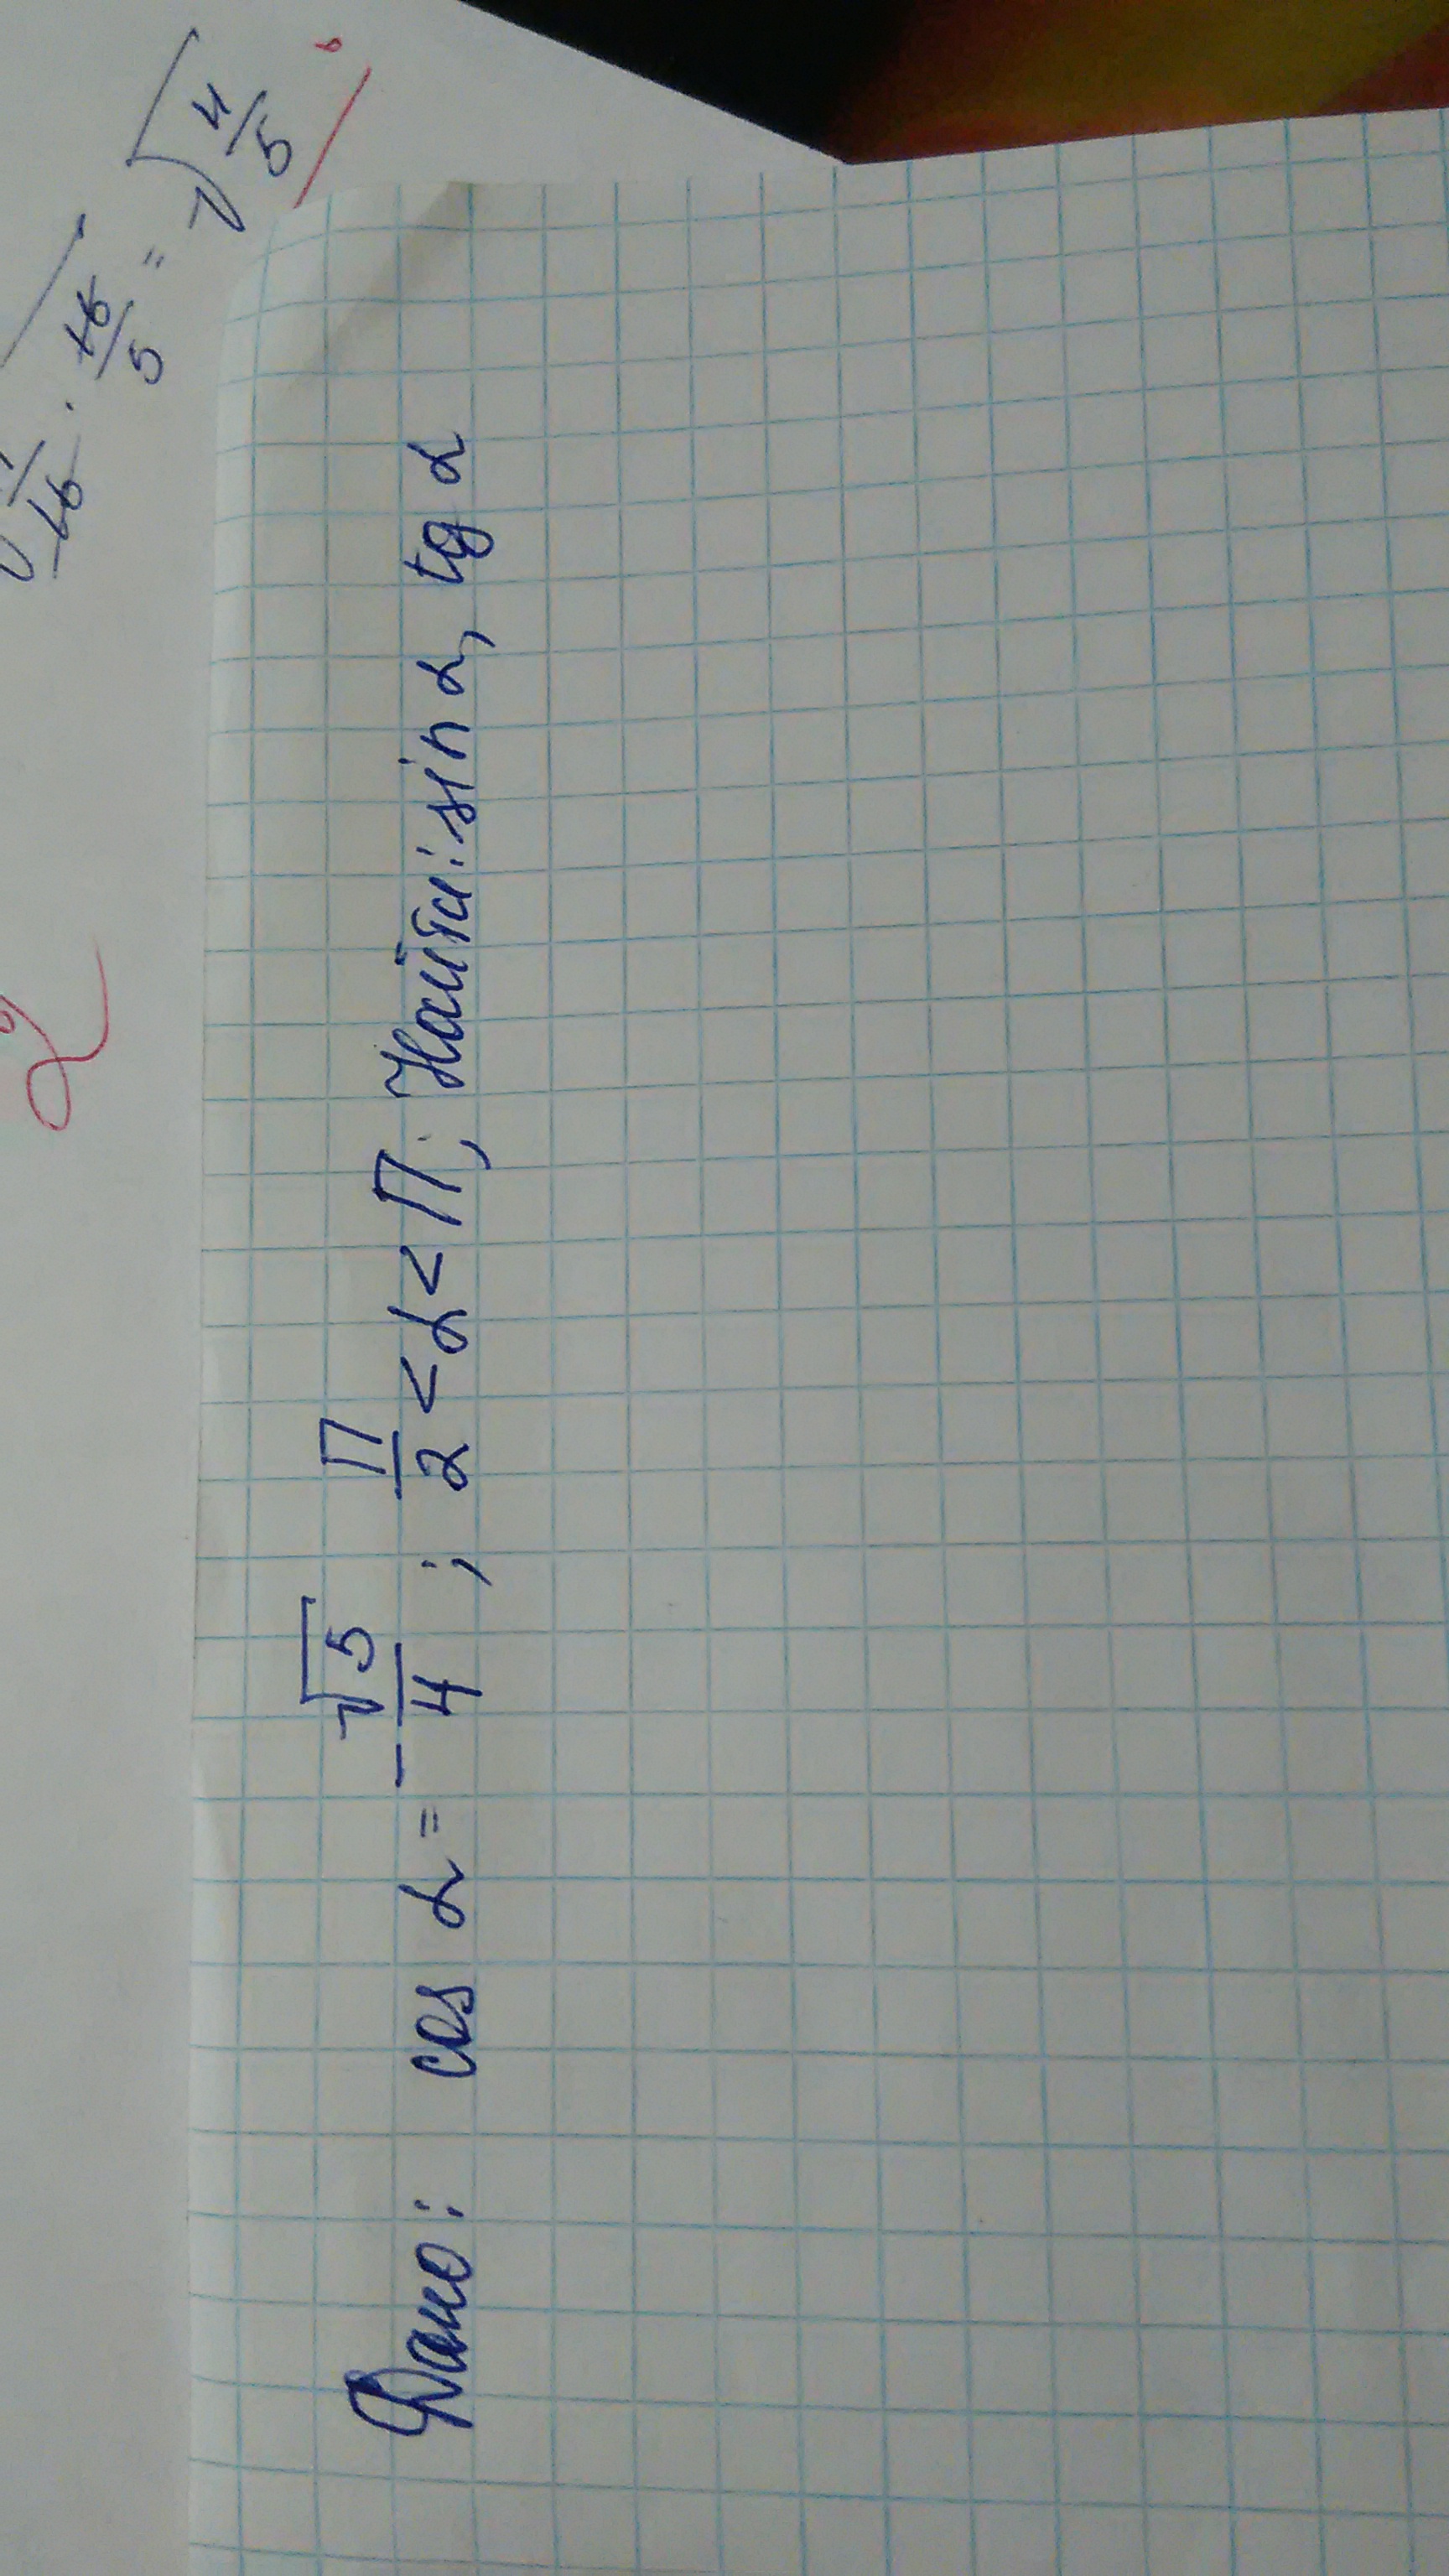 Дано: cos α = -√5/4 ; П/2 < α < П; Найти: sin α, tg α
16 · 16/5 = √4/5
2